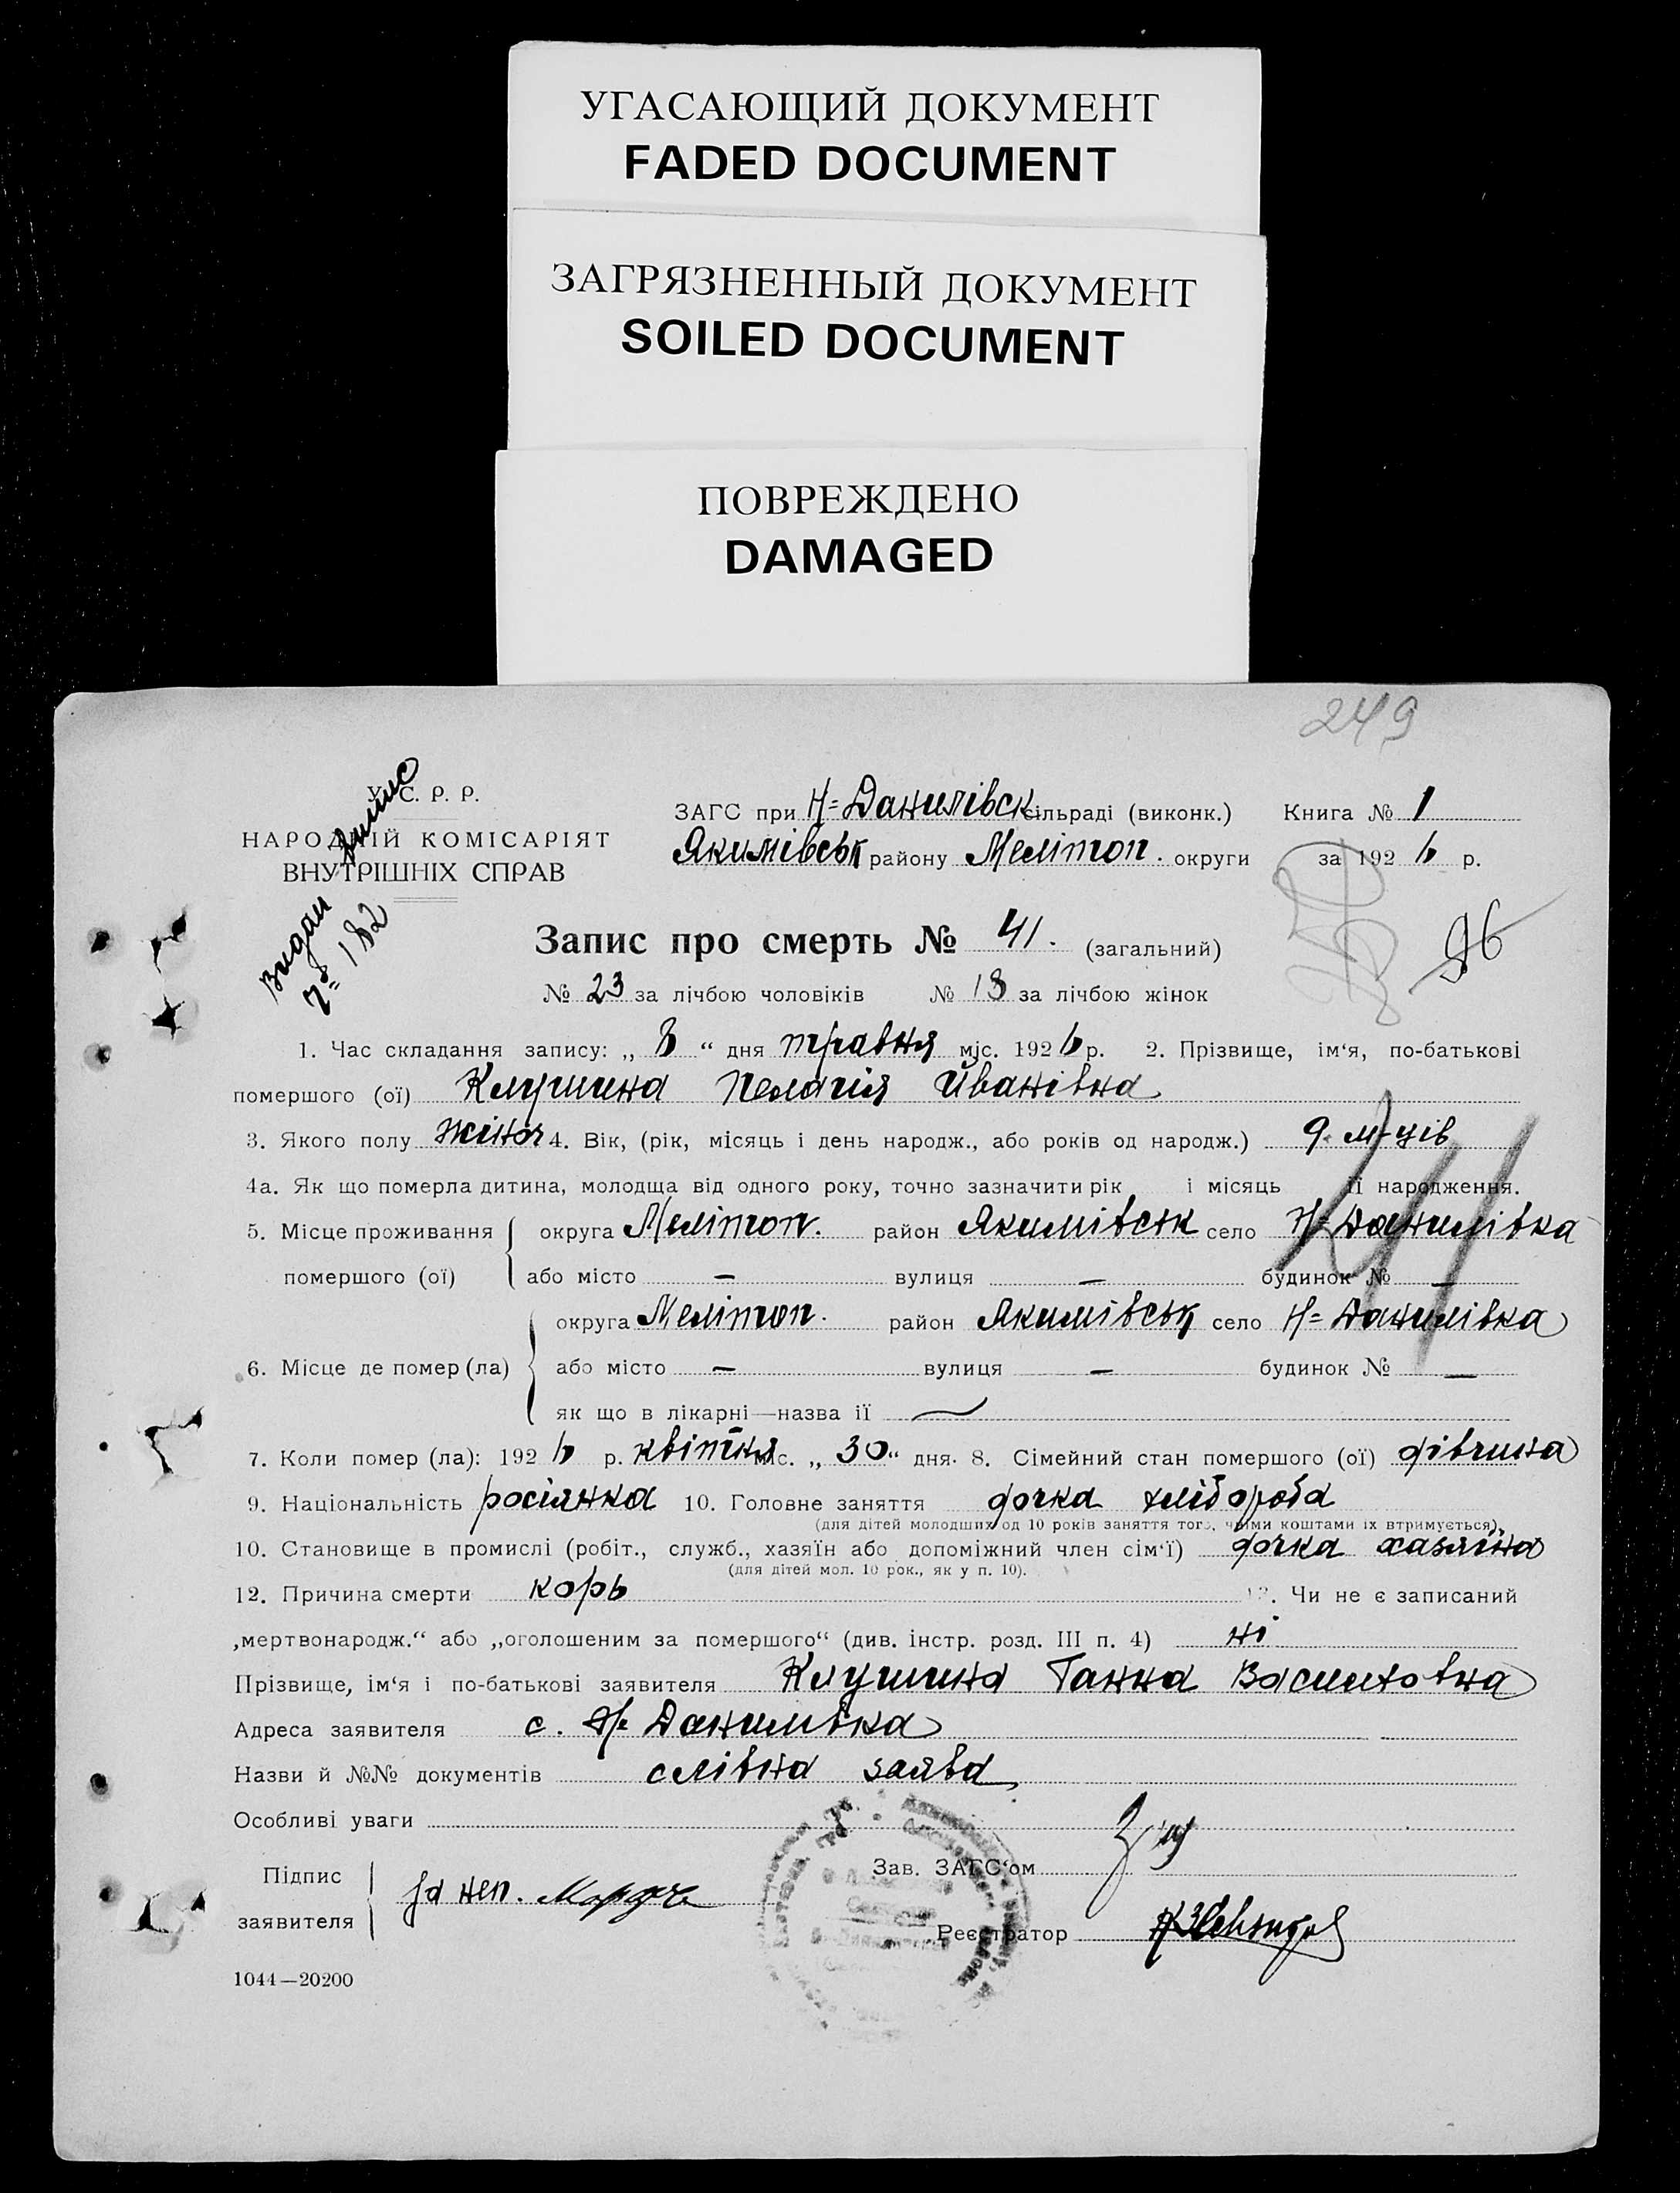 УГАСАЮЩИЙ ДОКУМЕНТ
FADED DOCUMENT
ЗАГРЯЗНЕННЫЙ ДОКУМЕНТ
SOILED DOCUMENT
ПОВРЕЖДЕНО
DAMAGED
249
У. С. Р. Р.
НАРОДНІЙ КОМІСАРІЯТ
ВНУТРІШНІХ СПРАВ
Видан
182
ЗАГС при Н=Данилівск сільраді (виконк.) Книга № 1
Якимівськ району Меліитоп. округи за 1926 р.
Запис про смерть № 41. (загальний)
96
№ 23 за лічбою чоловіків № 18 за лічбою жінок
1. Час складання запису: „ 8 “ дня травня міс. 1926 р. 2. Прізвище, ім‘я, по-батькові
помершого (ої) Клушина Пелагія Йванівна
3. Якого полу жіноч 4. Вік, (рік, місяць і день народж., або років од народж.) 9 м-ців
4а. Як що померла дитина, молодща від одного року, точно зазначити рік і місяць її народження.
5. Місце проживання округа Мелітоп. район Якимівськ село Н=Данилівка
помершого (ої) або місто — вулиця — будинок № —
округа Мелітоп. район Якимівськ село Н=Данилівка
6. Місце де помер (ла) або місто — вулиця — будинок № —
як що в лікарні—назва її —
7. Коли помер (ла): 1926 р. квітня міс. „ 30 “ дня. 8. Сімейний стан помершого (ої) дівчина
9. Національність росіянка 10. Головне заняття дочка хлібороба
(для дітей молодших од 10 років заняття того, чиїми коштами їх втримується).
10. Становище в промислі (робіт., служб., хазяїн або допоміжний член сім‘ї) дочка хазяїна
(для дітей мол. 10 рок., як у п. 10).
12. Причина смерти корь 13. Чи не є записаний
„мертвонародж.“ або „оголошеним за помершого“ (див. інстр. розд. III п. 4) ні
Прізвище, ім‘я і по-батькові заявителя Клушина Ганна Василовна
Адреса заявителя с. Н= Данилівка
Назви й №№ документів слівна заява
Особливі уваги
Підпис
заявителя
За неп.
Зав. ЗАГС‘ом
Реєстратор
1044—20200